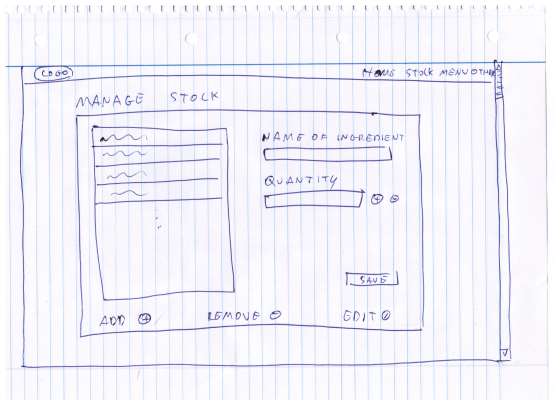 LOGO
HOME STOCK MENU OTHER
MANAGE STOCK
NAME OF INGREDIENT
QUANTITY
SAVE
ADD + REMOVE - EDIT